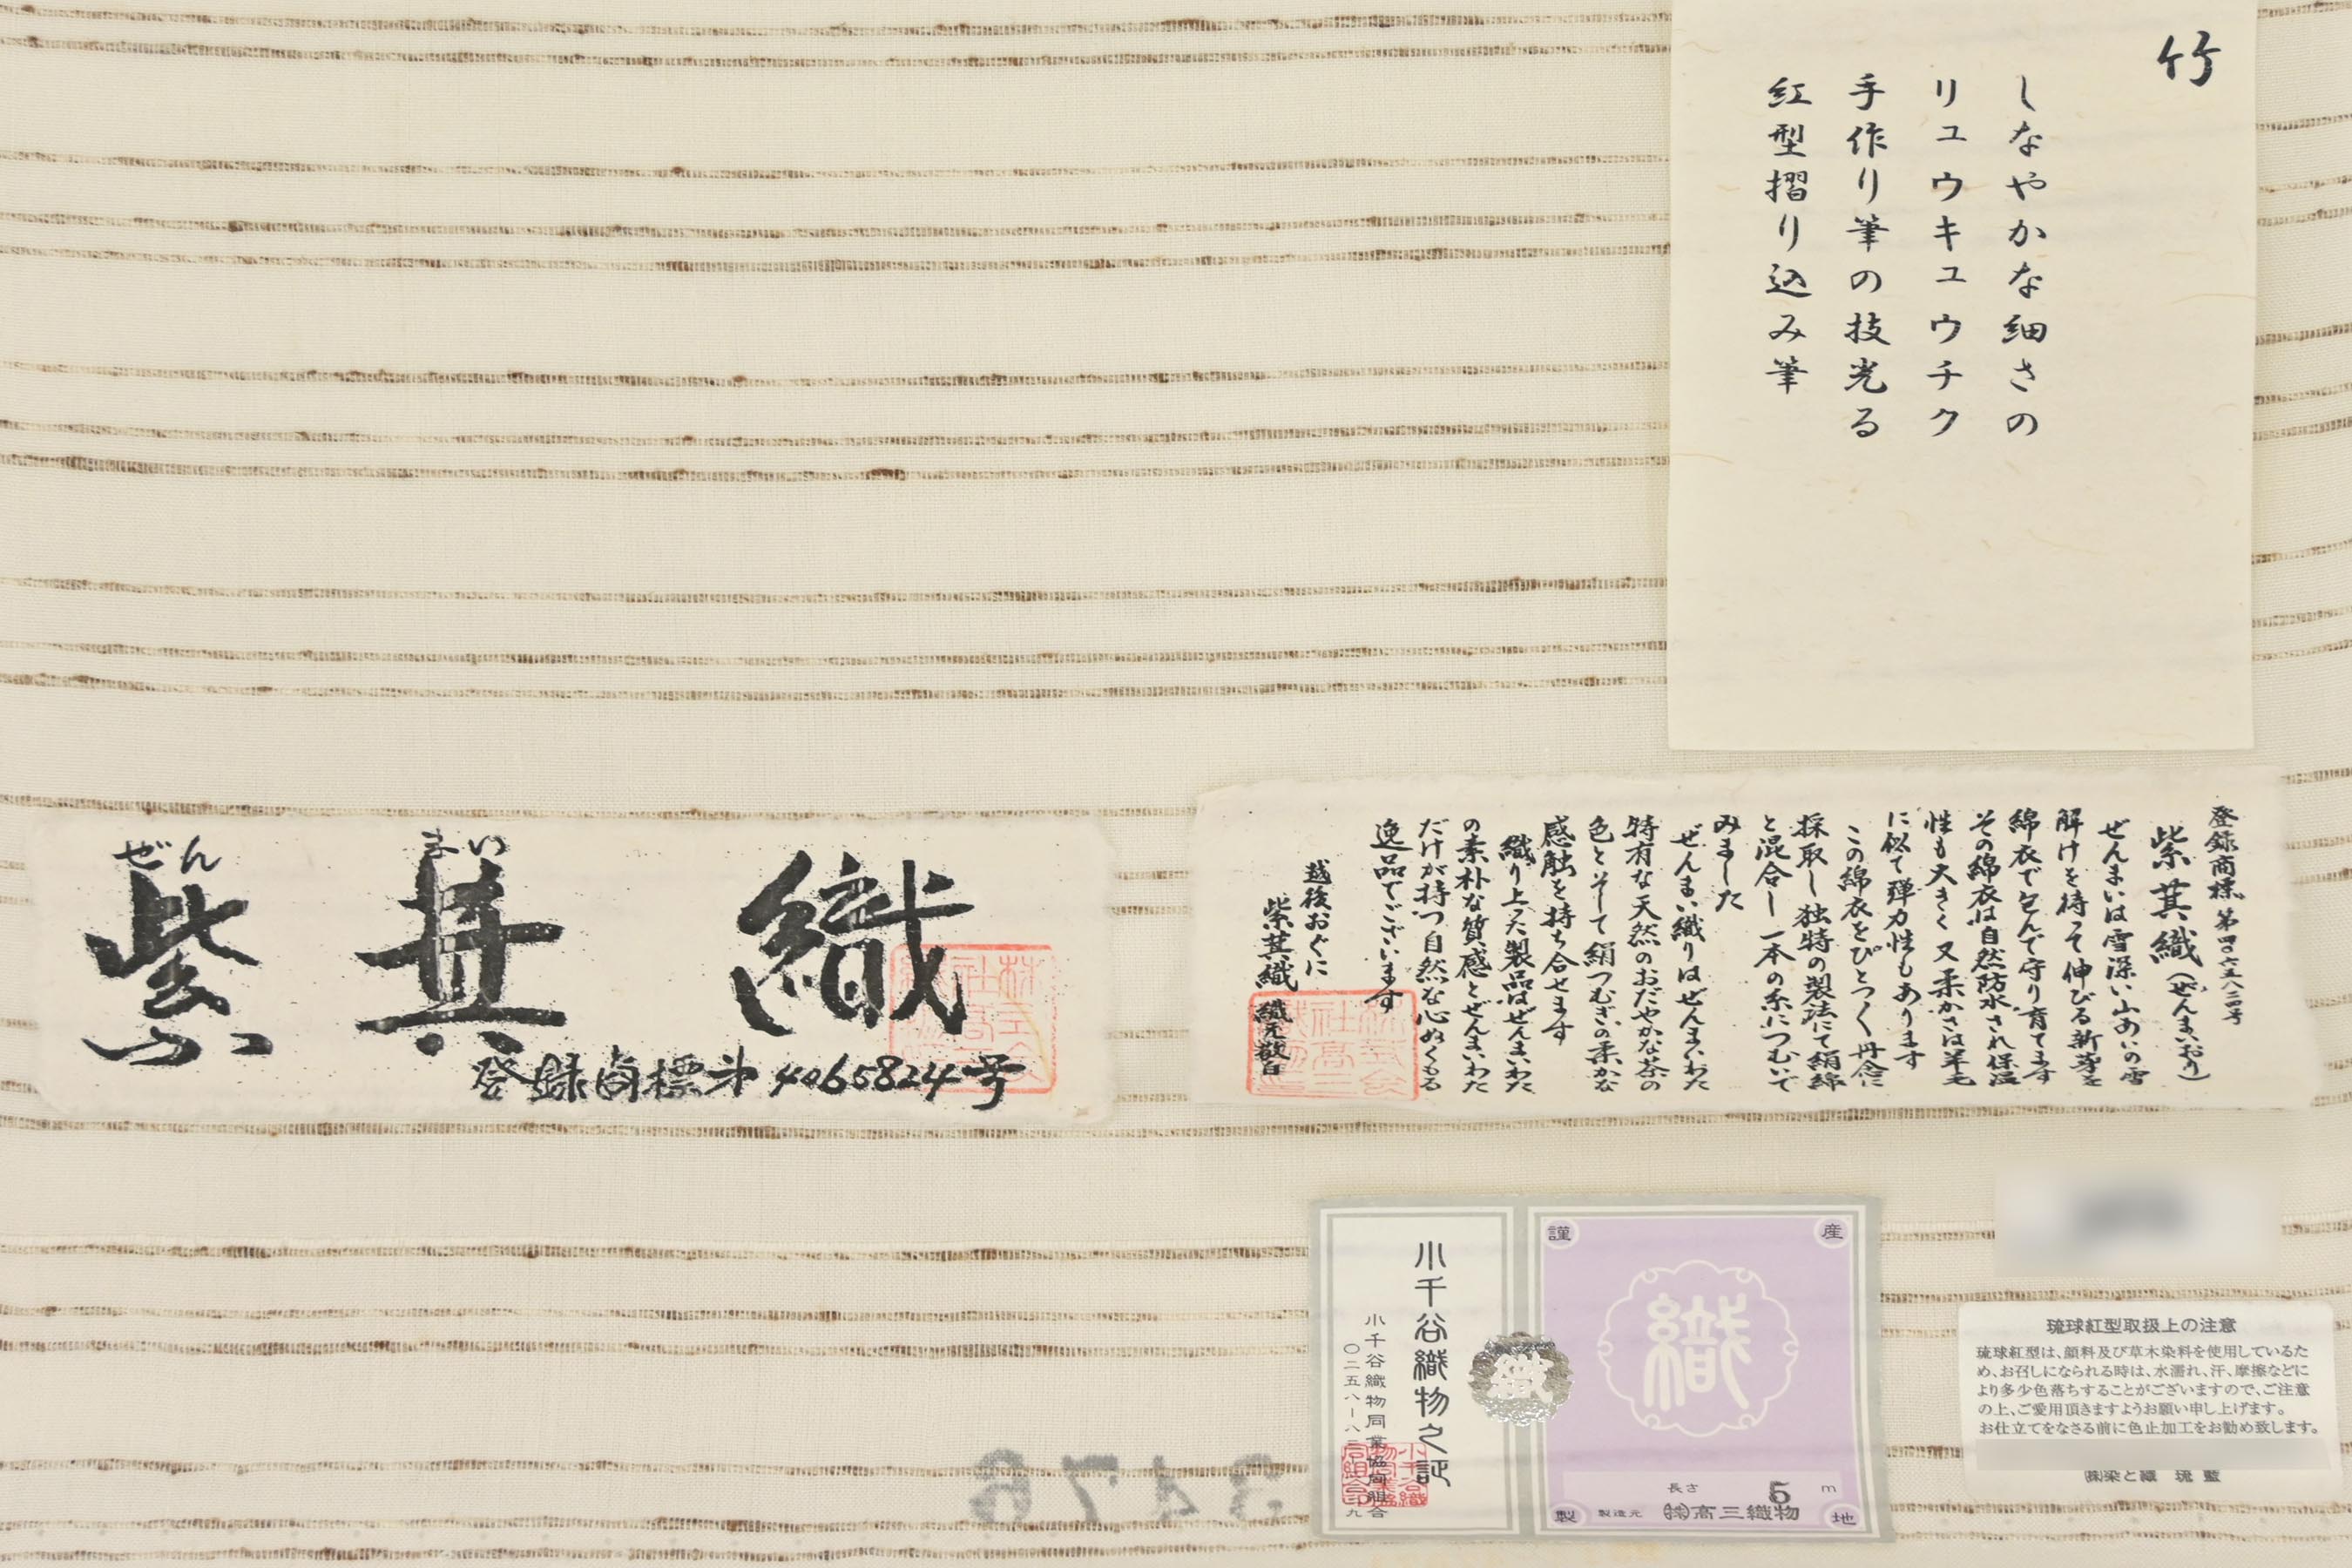 竹
しなやかな細さの
リュウキュウチク
手作り筆の技光る
紅型摺り込み筆
ぜんまい
紫萁織
登録商標第4065824号
登録商標 第四〇六五八二四号
紫萁織(ぜんまいおり)
ぜんまいは雪深い山あいの雪
解けを待って伸びる新芽を
綿衣で包んで守り育てます
その綿衣は自然防水され保温
性も大きく又柔かさは羊毛
に似て弾力性もあります
この綿衣をひとつく丹念に
採取し独特の製法にて絹綿
と混合し一本の糸につむいで
みました
ぜんまい織りはぜんまいわた
特有な天然のおだやかな茶の
色とそして絹つむぎの柔かな
感触を持ち合せます
織り上った製品はぜんまいわた
の素朴な質感とぜんまいわた
だけが持つ自然な心ぬくもる
逸品でございます
越後おぐに
紫萁織 織元敬白
小千谷織物之証
小千谷織物同業協同組合
謹
産
織
織
長さ 5 m
製
製造元 ㈱高三織物
地
琉球紅型取扱上の注意
琉球紅型は、顔料及び草木染料を使用しているた
め、お召しになられる時は、水濡れ、汗、摩擦などに
より多少色落ちすることがございますので、ご注意
の上、ご愛用頂きますようお願い申し上げます。
お仕立てをなさる前に色止加工をお勧め致します。
㈱染と織 琉藍